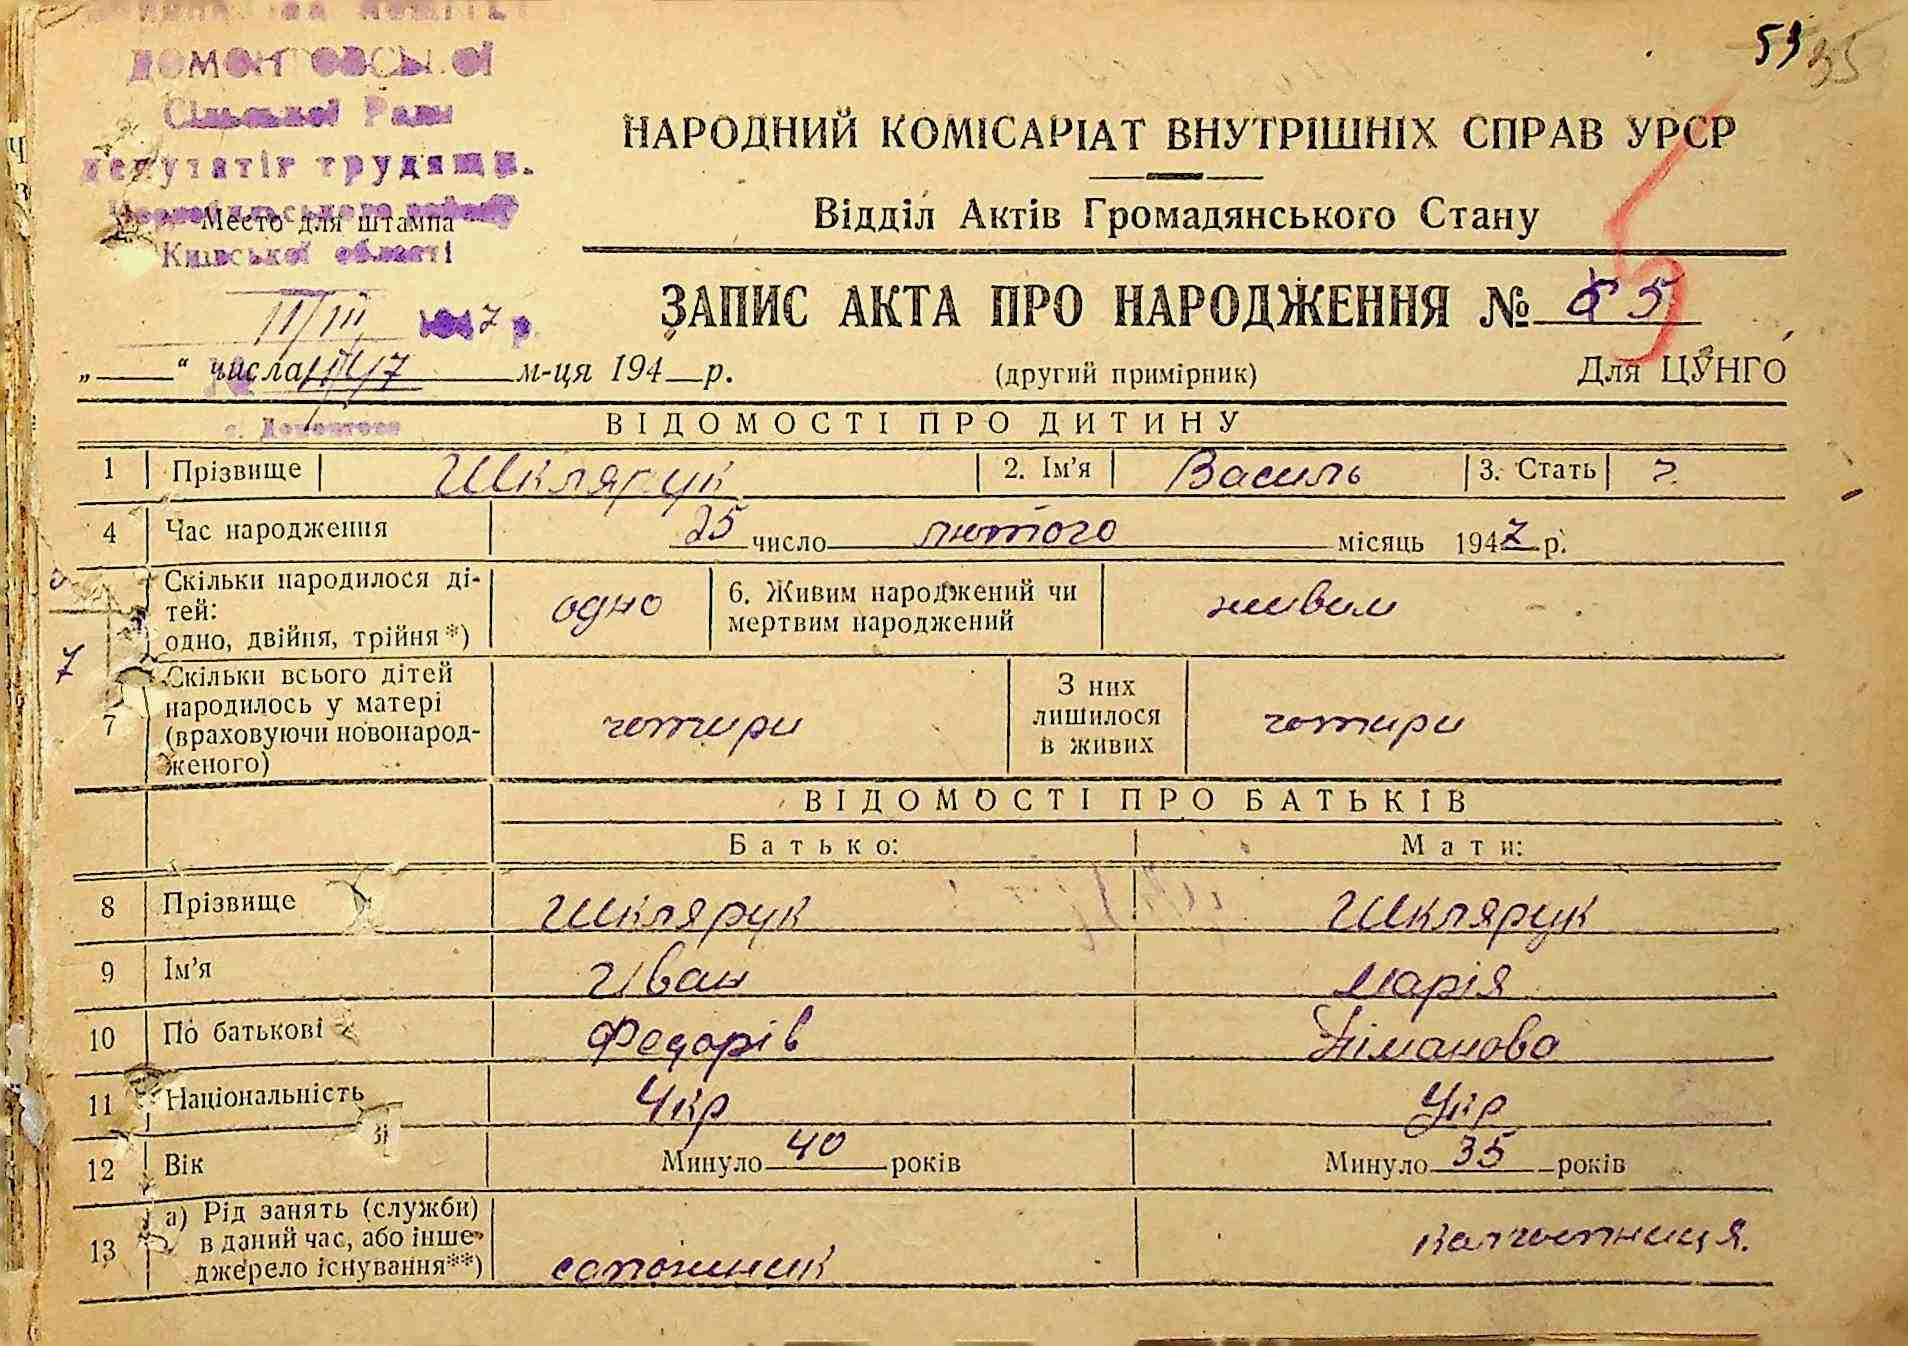 ДОМОНТОВСЬКОЇ
Сільської Ради
депутатів трудящих.
Место для штампа
Київської області
11/III 1947 р.
„ “ числа м-ця 194 р.
с. Домонтово
5
НАРОДНИЙ КОМІСАРІАТ ВНУТРІШНІХ СПРАВ УРСР
Відділ Актів Громадянського Стану
ЗАПИС АКТА ПРО НАРОДЖЕННЯ № 55
(другий примірник) Для ЦУНГО
ВІДОМОСТІ ПРО ДИТИНУ
1 Прізвище Шклярук 2. Ім’я Василь 3. Стать ч.
4 Час народження 25 число лютого місяць 1947 р.
Скільки народилося ді-
тей:
одно, двійня, трійня*) одно
6. Живим народжений чи
мертвим народжений живим
7 Скільки всього дітей
народилось у матері
(враховуючи новонарод-
женого) чотири
З них
лишилося
в живих чотири
ВІДОМОСТІ ПРО БАТЬКІВ
Батько: Мати:
8 Прізвище Шклярук Шклярук
9 Ім’я Іван Марія
10 По батькові Федорів
11 Національність Укр Укр
12 Вік Минуло 40 років Минуло 35 років
13 а) Рід занять (служби)
в даний час, або інше
джерело існування**) сапожник колгоспниця.